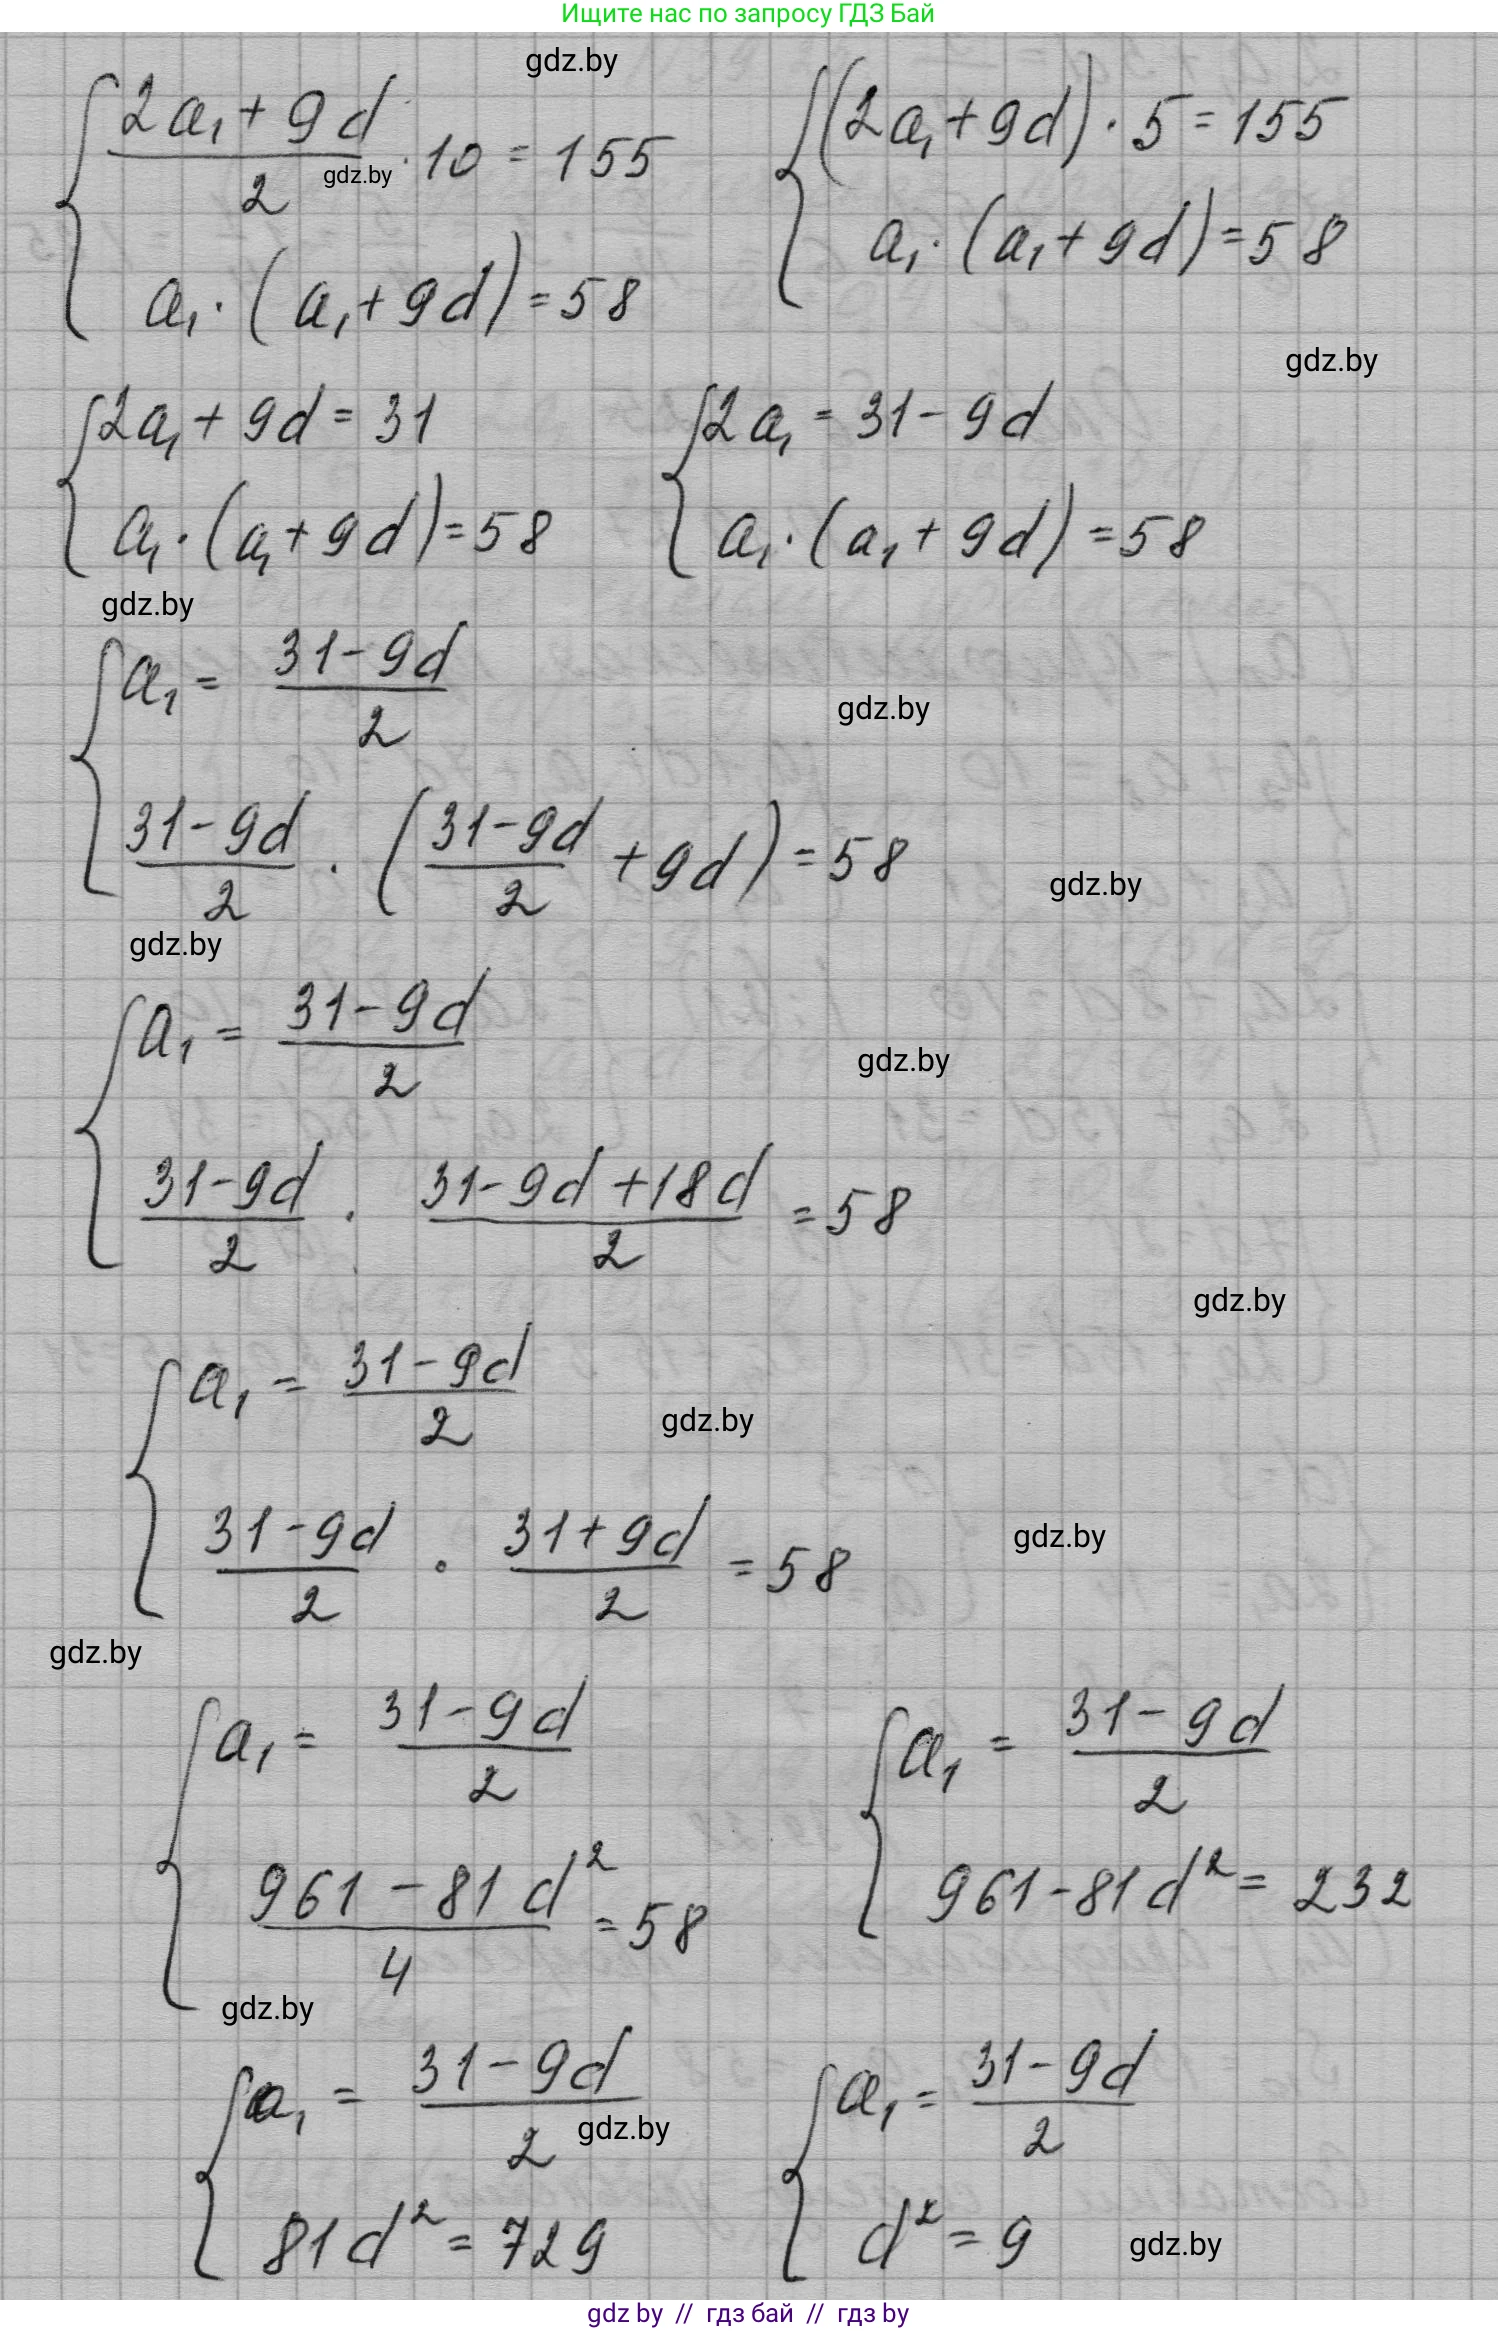 Ищите нас по запросу ГДЗ Бай
gdz.by
{ (2a₁ + 9d)/2 · 10 = 155
gdz.by
a₁ · (a₁ + 9d) = 58
{ (2a₁ + 9d) · 5 = 155
a₁ · (a₁ + 9d) = 58
gdz.by
{ 2a₁ + 9d = 31
a₁ · (a₁ + 9d) = 58
{ 2a₁ = 31 - 9d
a₁ · (a₁ + 9d) = 58
gdz.by
{ a₁ = (31 - 9d)/2
gdz.by
(31 - 9d)/2 · ((31 - 9d)/2 + 9d) = 58
gdz.by
gdz.by
{ a₁ = (31 - 9d)/2
gdz.by
(31 - 9d)/2 · (31 - 9d + 18d)/2 = 58
gdz.by
{ a₁ = (31 - 9d)/2
gdz.by
(31 - 9d)/2 · (31 + 9d)/2 = 58
gdz.by
gdz.by
{ a₁ = (31 - 9d)/2
(961 - 81d²)/4 = 58
{ a₁ = (31 - 9d)/2
961 - 81d² = 232
gdz.by
{ a₁ = (31 - 9d)/2
gdz.by
81d² = 729
{ a₁ = (31 - 9d)/2
d² = 9
gdz.by
gdz by // гдз бай // гдз by